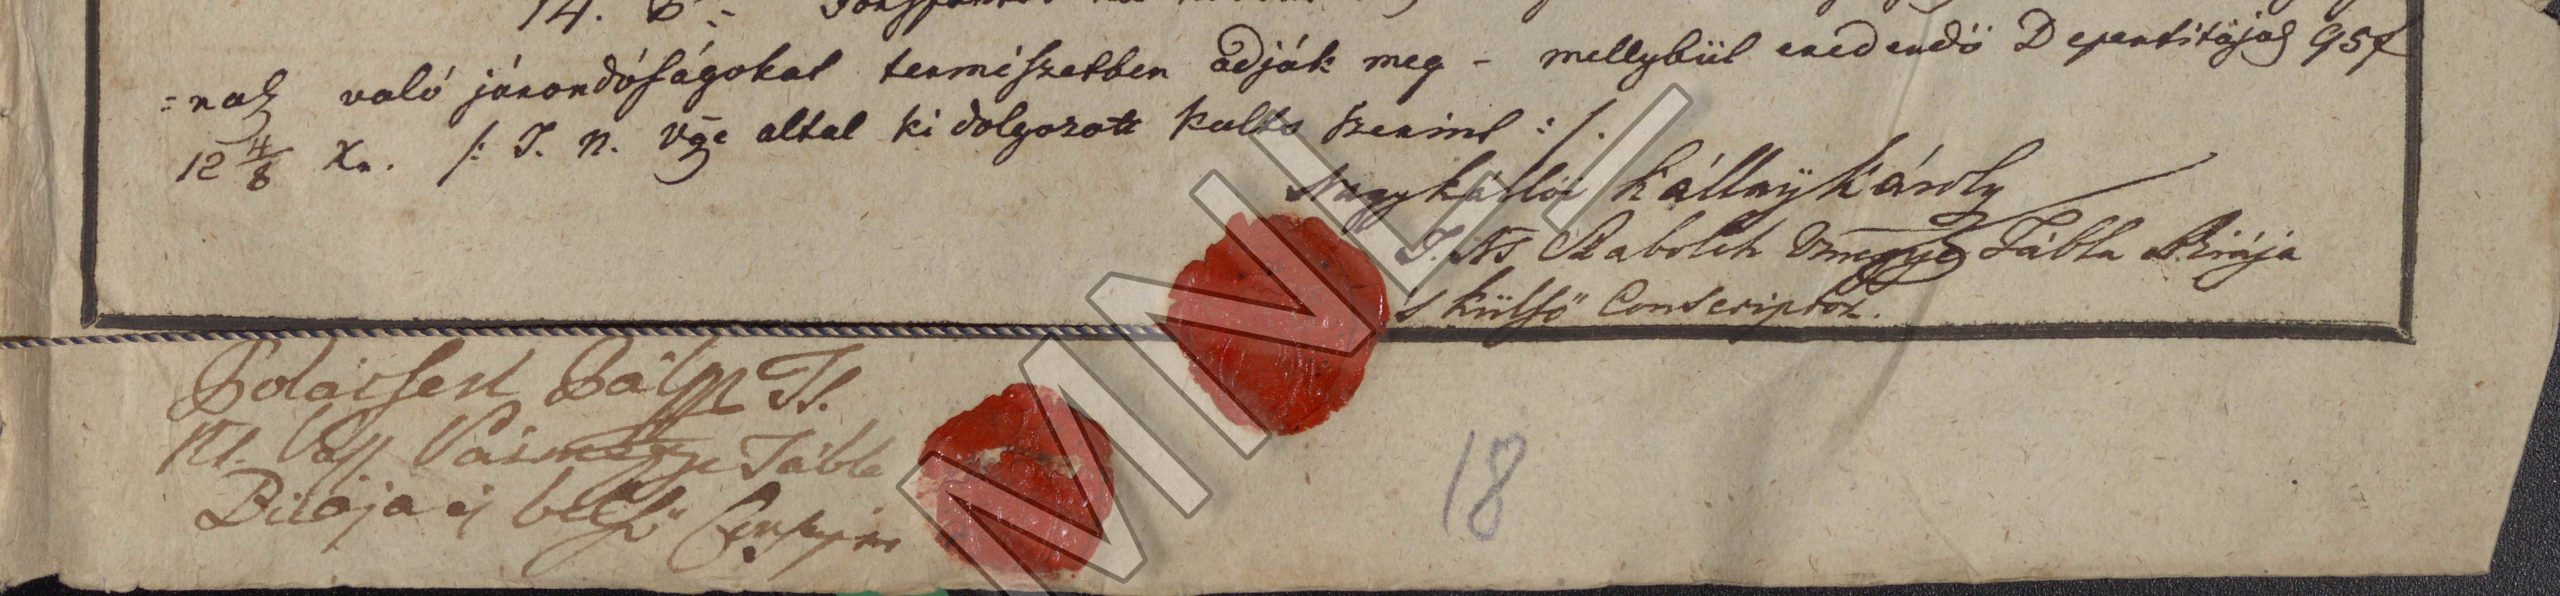 14. 
=nak való járandóságokat természetben adják meg – mellybül eredendö Deperditájok 95f
12 4/8 Xr. /: T. N. Vgye altal ki dolgozott kults szerint :/.
Nagy Kállói Kállay Károly
T. Ns Szabolch Vmegye Tábla Birája
s külső Conscriptor.
Pál Ts.
Ns. Vas Vármegye Tábla
Birája és belső
18
MNL